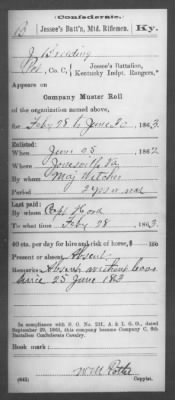 Confederate.
B | Jesse's Batt'n, Mtd. Riflemen. | Ky.
J
Pvt, Co. C, Jessee's Battalion,
Kentucky Indpt. Rangers.*
Appears on
Company Muster Roll
of the organization named above,
for Feby 28 to June 30, 1863.
Enlisted:
When June 25, 1862
Where Jonesville Va
By whom Maj Witcher
Period 2 yrs or war
Last paid:
By whom Capt Hood
To what time Feby 28, 1863.
40 cts. per day for hire and risk of horse, $ 100
Present or absent Absent
Remarks: Absent without leave
since 25 June 1863
In compliance with S. O. No.
September 1863, this company became Company C, 6th
Battalion Confederate Cavalry.
Book mark:
(642)
Copyist.